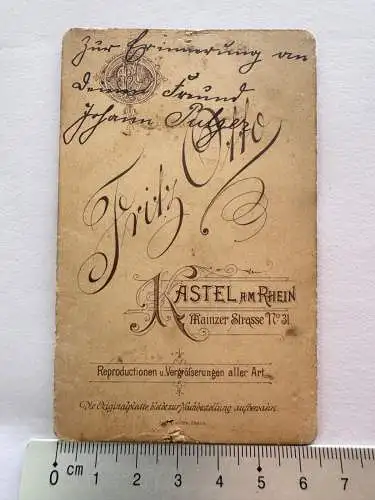 Zur Erinnerung an
Deinen Freund
Johann
Fritz Otto
KASTEL AM RHEIN
Mainzer Strasse No 31.
Reproductionen u. Vergrösserungen aller Art.
Die Originalplatte bleibt zur Nachbestellung aufbewahrt.
0 cm 1 2 3 4 5 6 7